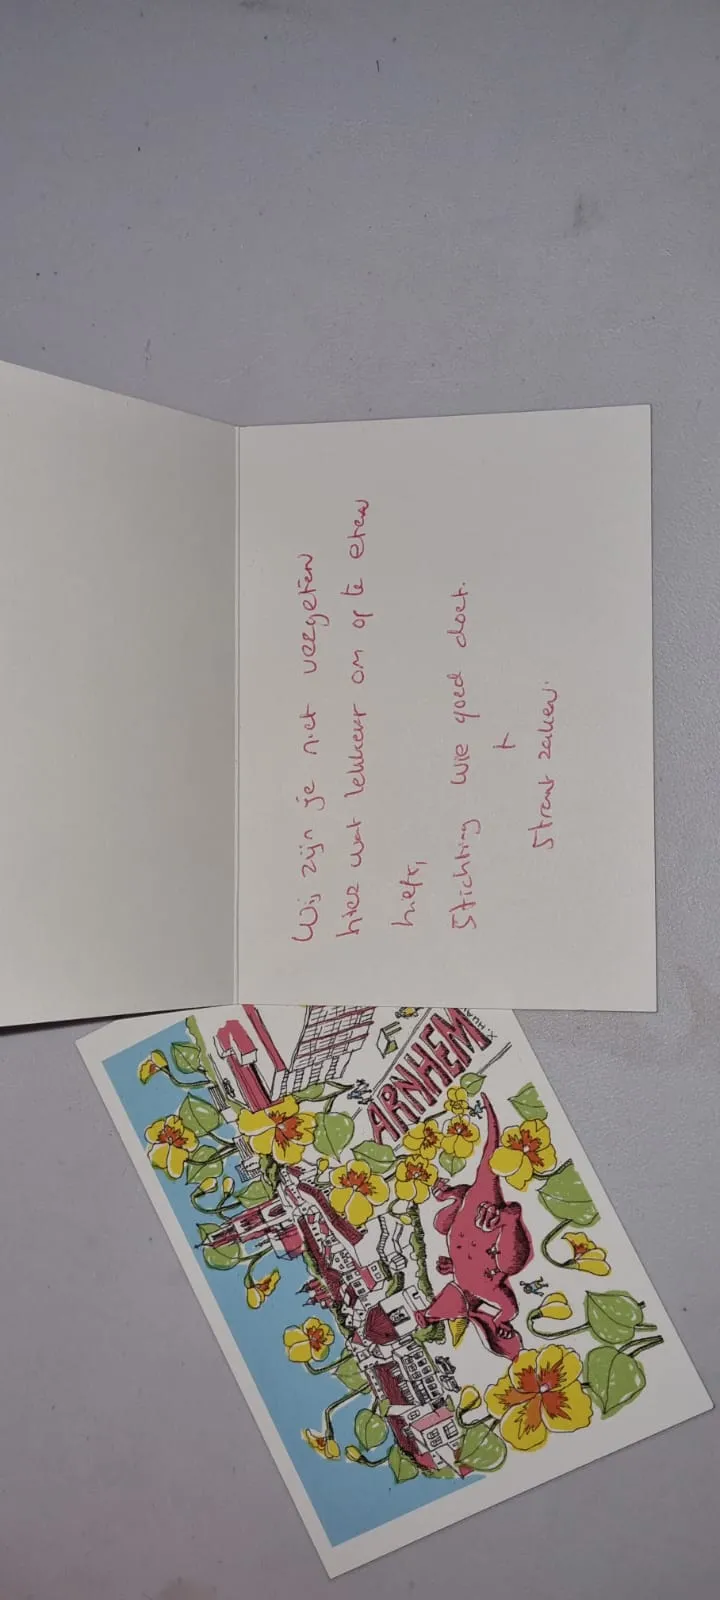 Wij zijn je niet vergeten
hier wat lekkers om op te eten
liefs,
Stichting wie goed doet.
+
Straat zaken.
ARNHEM